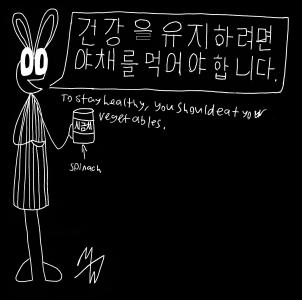 건강을 유지하려면
야채를 먹어야 합니다.
To stay healthy, you should eat your
vegetables.
시금치
spinach